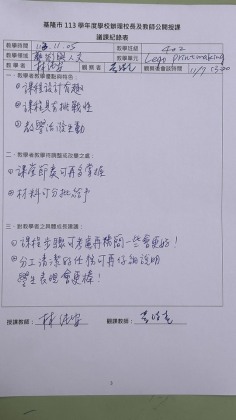 基隆市 113 學年度學校辦理校長及教師公開授課
議課紀錄表
教學時間 113.11.05 教學班級 402
教學領域 藝術與人文 教學單元 Lego Printmaking
教學者 觀察者 觀察後會談時間 11/7 15:00
一、教學者教學優點與特色：
①課程設計有趣
②課程具有挑戰性
③教學活潑生動
二、教學者教學待調整或改變之處：
①課堂節奏可再多掌握
②材料可分批給予
三、對教學者之具體成長建議：
①課程步驟可考慮再精簡一些會更好！
②分工清潔的任務可再仔細說明
學生表現會更棒！
授課教師： 觀課教師：
3